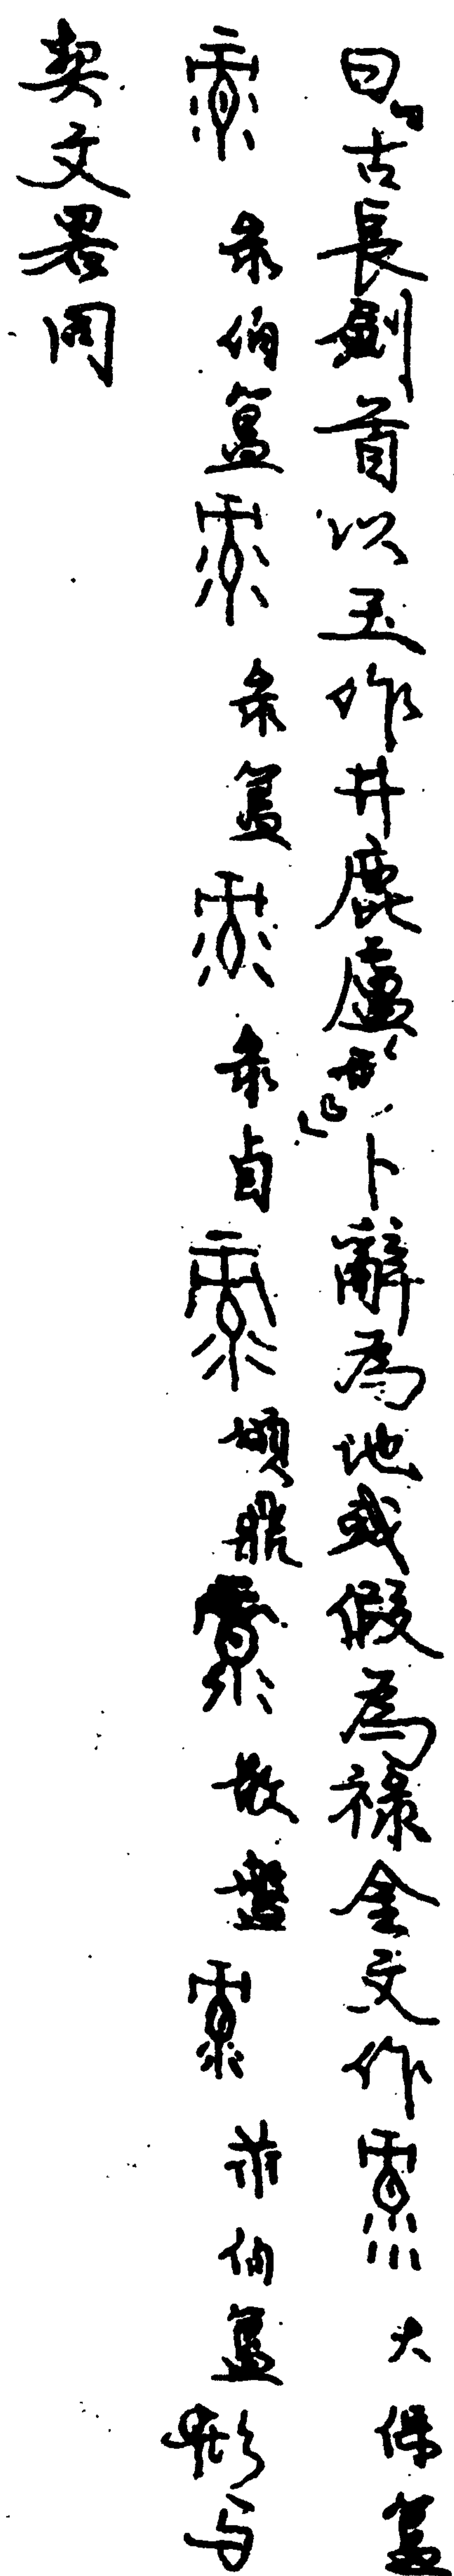 曰「古長劍首以玉作井鹿盧形」卜辭為地或假為祿金文作 大保簋
彔伯簋 彔簋 彔卣 頌鼎 散盤 伯簋 形与
契文畧同